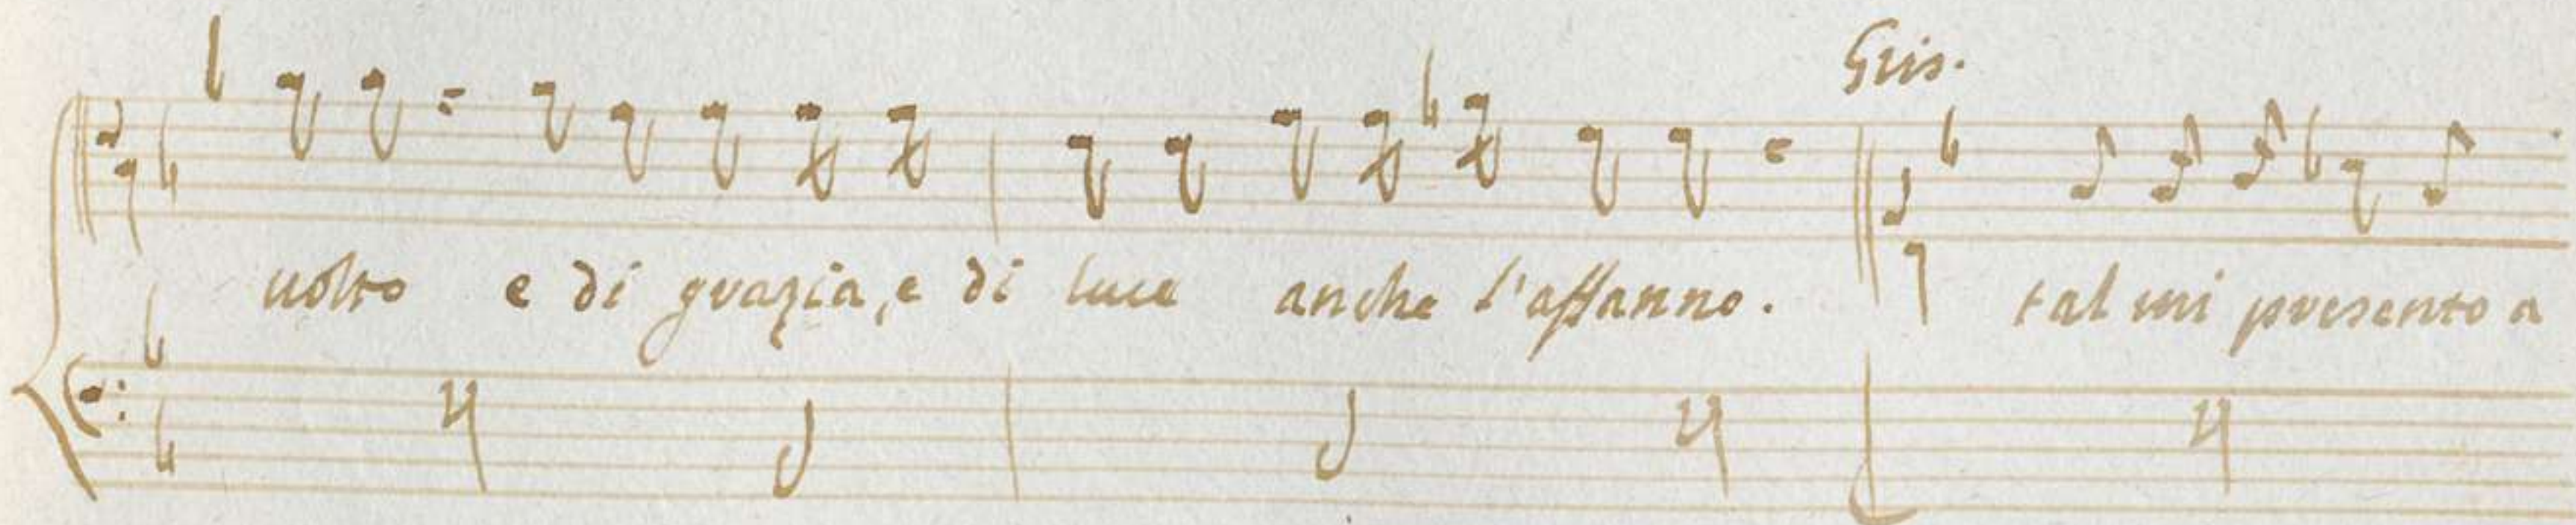 Gris.
uolto e di grazia, e di luce anche l'affanno. tal mi presento a